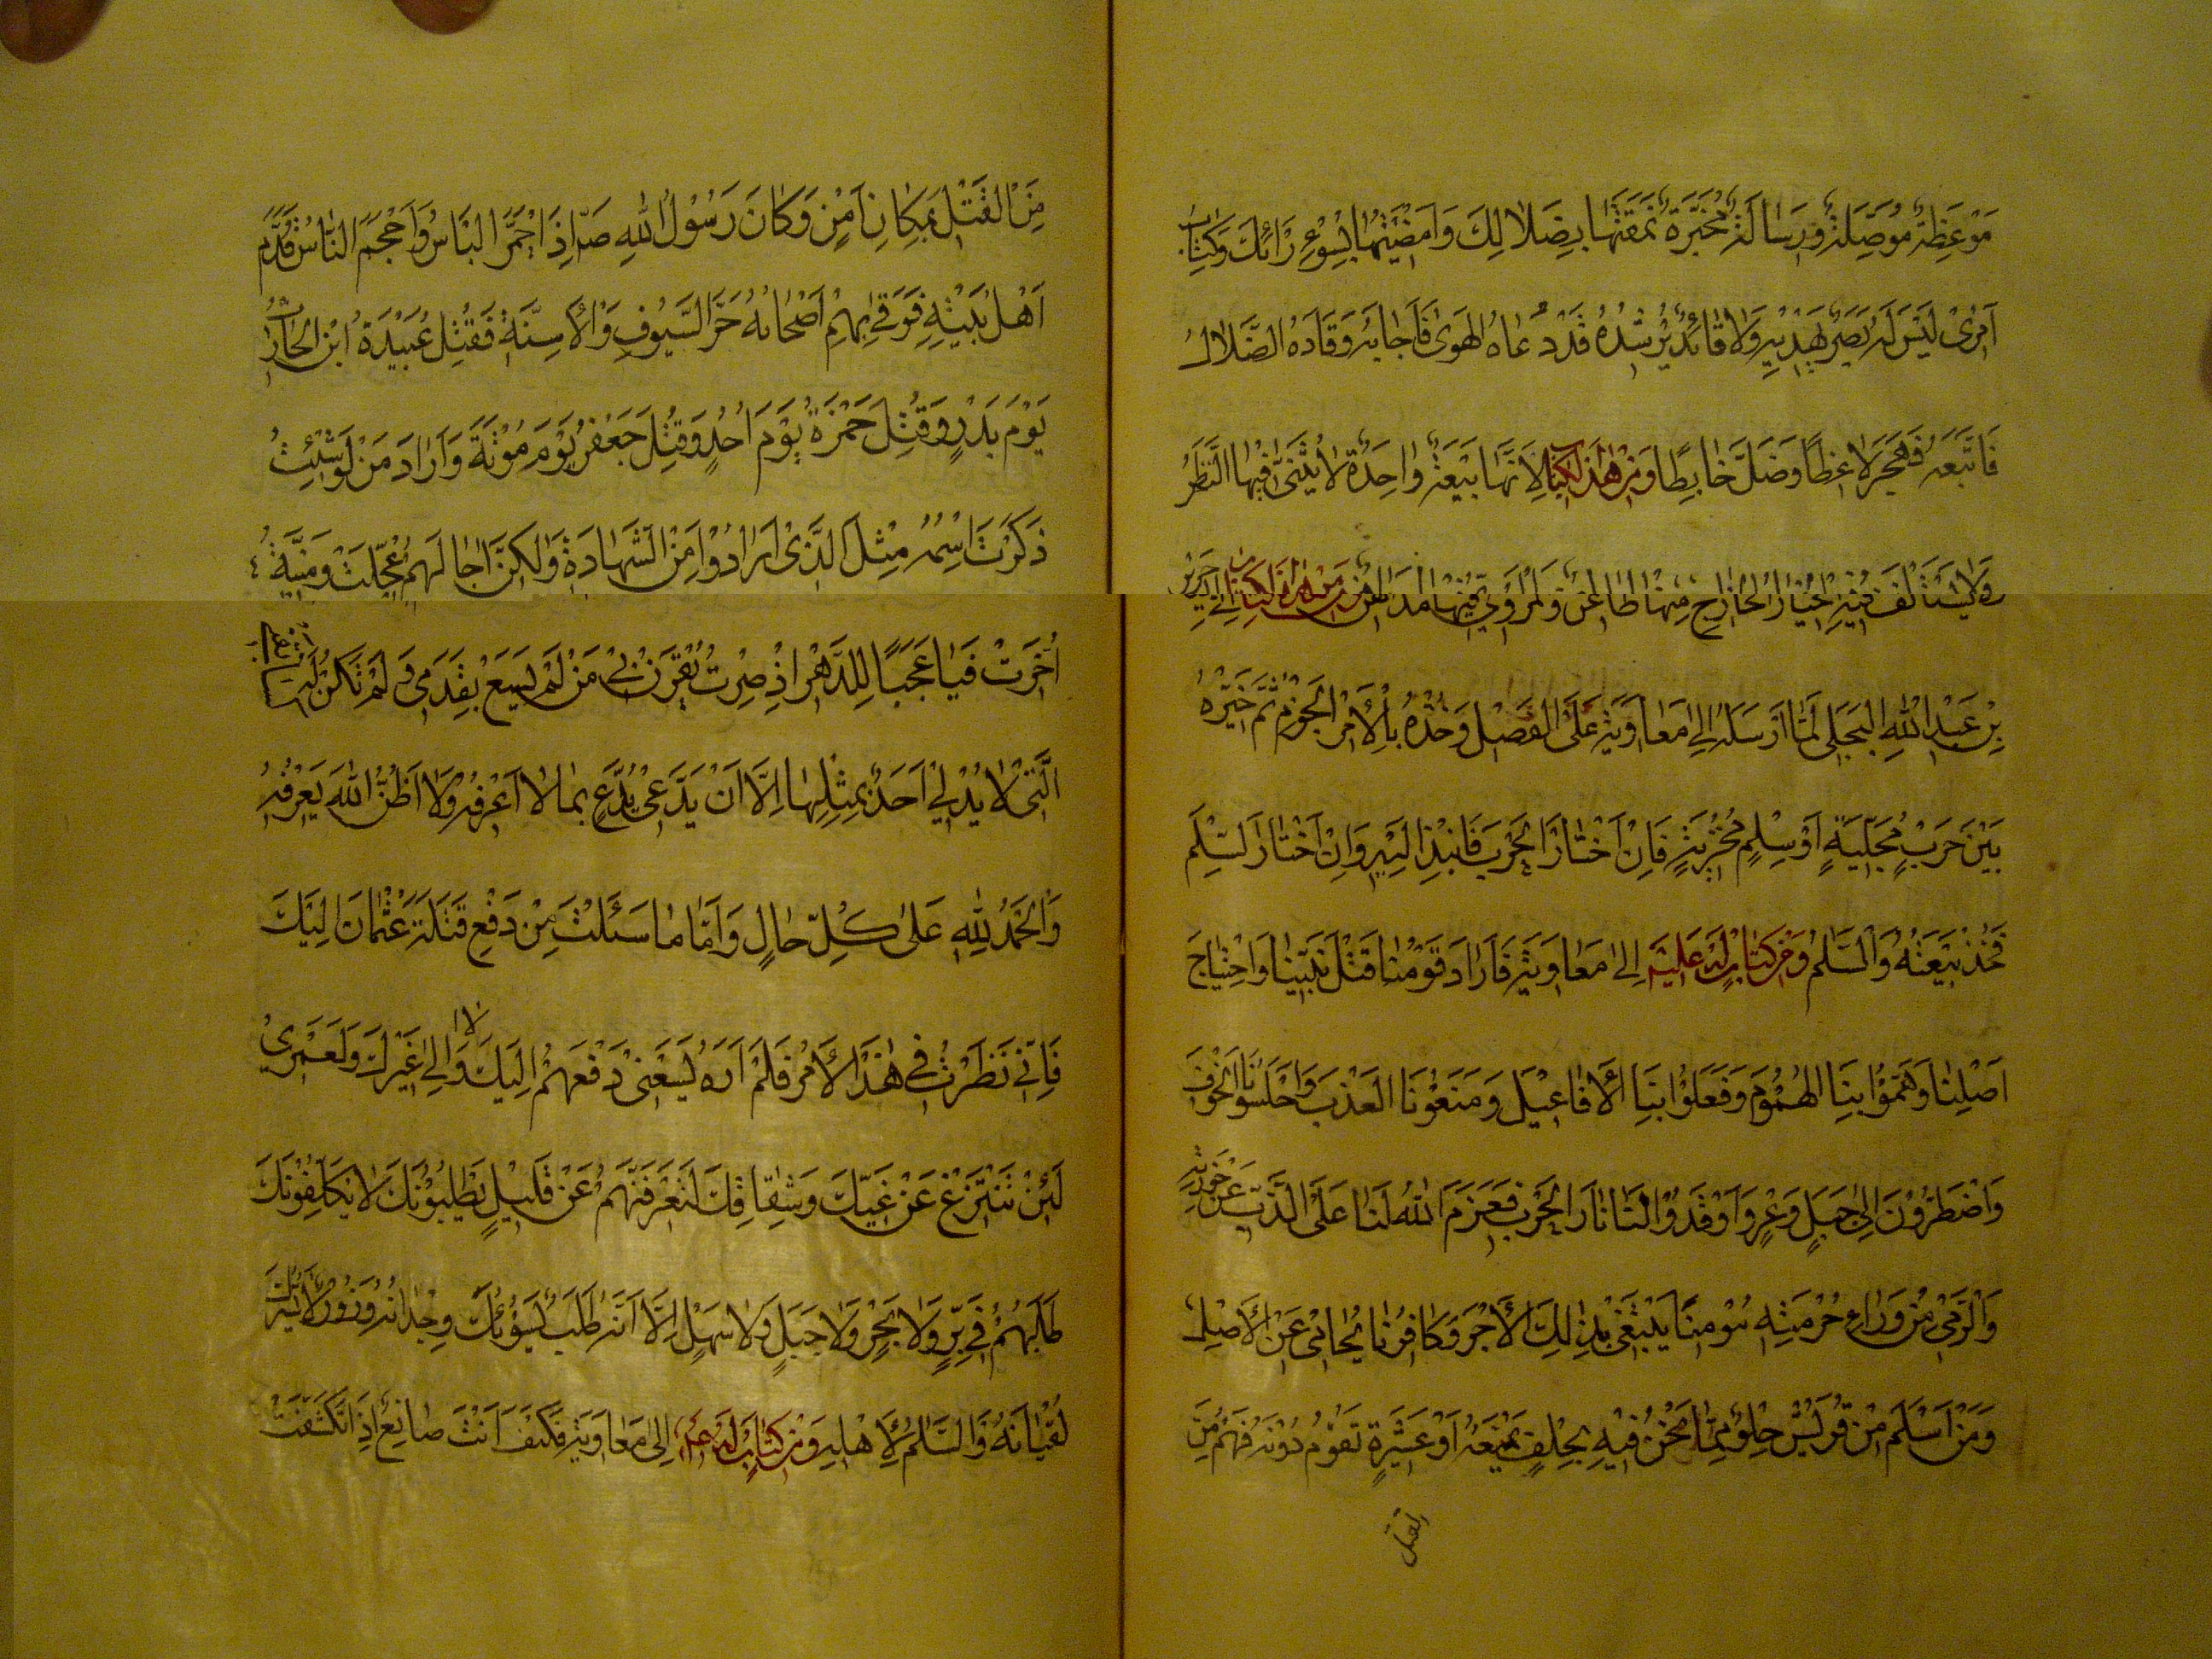 مَوْعِظَةٌ مُوَصَّلَةٌ وَرِسَالَةٌ مُحَبَّرَةٌ نَمَّقْتَهَا بِضَلَالِكَ وَاَمْضَيْتَهَا بِسُوءِ رَائِكَ وَكِتَابُ
امْرِئٍ لَيْسَ لَهُ بَصَرٌ يَهْدِيهِ وَلَا قَائِدٌ يُرْشِدُهُ قَدْ دَعَاهُ الهَوَىٰ فَاَجَابَهُ وَقَادَهُ الضَّلَالُ
فَاتَّبَعَهُ فَهَجَرَ لَاغِطًا وَضَلَّ خَابِطًا وَمِنْ هٰذَا الْكِتَابِ لِاَنَّهَا بَيْعَةٌ وَاحِدَةٌ لَا يُثَنَّى فِيهَا النَّظَرُ
وَلَا يُسْتَأْنَفُ فِيهَا الْخِيَارُ الْخَارِجُ مِنْهَا طَاعِنٌ وَالْمُرَوِّي فِيْهَا مُدَاهِنٌ وَمِنْ كِتَابٍ لَهُ اِلَى جَرِيرِ
بْنِ عَبْدِ اللهِ الْبَجَلِي لَمَّا اَرْسَلَهُ اِلَى مُعَاوِيَةَ عَلَى الْفَصْلِ وَخُذْهُ بِالْاَمْرِ الْجَزْمِ ثُمَّ خَيِّرْهُ
بَيْنَ حَرْبٍ مُجْلِيَةٍ اَوْ سِلْمٍ مُخْزِيَةٍ فَاِنْ اخْتَارَ الْحَرْبَ فَانْبِذْ اِلَيْهِ وَاِنْ اخْتَارَ السِّلْمَ
فَخُذْ بَيْعَتَهُ وَالسَّلَمُ وَمِنْ كِتَابٍ لَهُ عَلَيْهِ اِلىٰ مُعَاوِيَةَ فَاَرَادَ قَوْمُنَا قَتْلَ نَبِيِّنَا وَاجْتِيَاحَ
اَصْلِنَا وَهَمُّوا بِنَا الهُمُوْمَ وَفَعَلُوا بِنَا الْاَفَاعِيْلَ وَمَنَعُوْنَا الْعَذْبَ وَاَحْلَسُوْنَا الْخَوْفَ
وَاضْطَرُّوْنَا اِلَى جَبَلٍ وَعْرٍ وَاَوْقَدُوْا لَنَا نَارَ الْحَرْبِ فَعَزَمَ اللهُ لَنَا عَلَى الذَّبِّ عَنْ حَوْزَتِهِ
وَالرَّمْيِ مِنْ وَرَاءِ حُرْمَتِهِ مُؤْمِنُنَا يَبْتَغِي بِذٰلِكَ الْاَجْرَ وَكَافِرُنَا يُحَامِي عَنِ الْاَصْلِ
وَمَنْ اَسْلَمَ مِنْ قُرَيْشٍ خِلْوٌ مِمَّا نَحْنُ فِيْهِ بِحِلْفٍ يَمْنَعُهُ اَوْ عَشِيْرَةٍ تَقُوْمُ دُوْنَهُ فَهُمْ مِنَ
القتل
مِنَ الْقَتْلِ بِمَكَانِ اَمْنٍ وَكَانَ رَسُوْلُ اللهِ ص اِذَا احْمَرَّ الْبَاسُ وَاَحْجَمَ النَّاسُ قَدَّمَ
اَهْلَ بَيْتِهِ فَوَقىٰ بِهِمْ اَصْحَابَهُ حَرَّ السُّيُوفِ وَالْاَسِنَّةِ فَقُتِلَ عُبَيْدَةُ ابْنُ الْحَارِثِ
يَوْمَ بَدْرٍ وَقُتِلَ حَمْزَةُ يَوْمَ اُحُدٍ وَقُتِلَ جَعْفَرُ يَوْمَ مُوْتَةَ وَاَرَادَ مَنْ لَوْ شِئْتُ
ذَكَرْتُ اسْمَهُ مِثْلَ الَّذِىْ اَرَادُوْا مِنَ الشَّهَادَةِ وَلٰكِنَّ اٰجَالَهُمْ عُجِّلَتْ وَمَنِيَّتُهُ
اُخِّرَتْ فَيَا عَجَبًا لِلدَّهْرِ اِذْ صِرْتُ يُقْرَنُ بِيْ مَنْ لَمْ يَسْعَ بِقَدَمِى وَلَمْ تَكُنْ لَهُ
الَّتِىْ لَا يُدْلِيْ اَحَدٌ بِمِثْلِهَا اِلَّا اَنْ يَدَّعِىَ مُدَّعٍ بِمَا لَا اَعْرِفُهُ وَلَا اَظُنُّ اللهَ يَعْرِفُهُ
وَالْحَمْدُ لِلهِ عَلىٰ كُلِّ حَالٍ وَاَمَّا مَا سَئَلْتَ مِنْ دَفْعِ قَتَلَةِ عُثْمَانَ اِلَيْكَ
فَاِنِّي نَظَرْتُ فِي هٰذَا الْاَمْرِ فَلَمْ اَرَهُ يَسَعُنِىْ دَفْعُهُمْ اِلَيْكَ وَلَا اِلىٰ غَيْرِكَ وَلَعَمْرِيْ
لَئِنْ لَمْ تَنْتَزِعْ عَنْ غَيِّكَ وَشِقَاقِكَ لَتَعْرِفَنَّهُمْ عَنْ قَلِيْلٍ يَطْلُبُوْنَكَ لَا يُكَلِّفُوْنَكَ
طَلَبَهُمْ فِي بَرٍّ وَلَا بَحْرٍ وَلَا جَبَلٍ وَلَا سَهْلٍ اِلَّا اَنَّهُ طَلَبٌ يَسُوْئُكَ وِجْدَانُهُ وَزَوْرٌ لَا يَسُرُّكَ
لُقْيَانُهُ وَالسَّلَمُ لِاَهْلِهِ وَمِنْ كِتَابٍ لَهُ ع اِلىٰ مُعَاوِيَةَ فَكَيْفَ اَنْتَ صَانِعٌ اِذَا تَكَشَّفَتْ